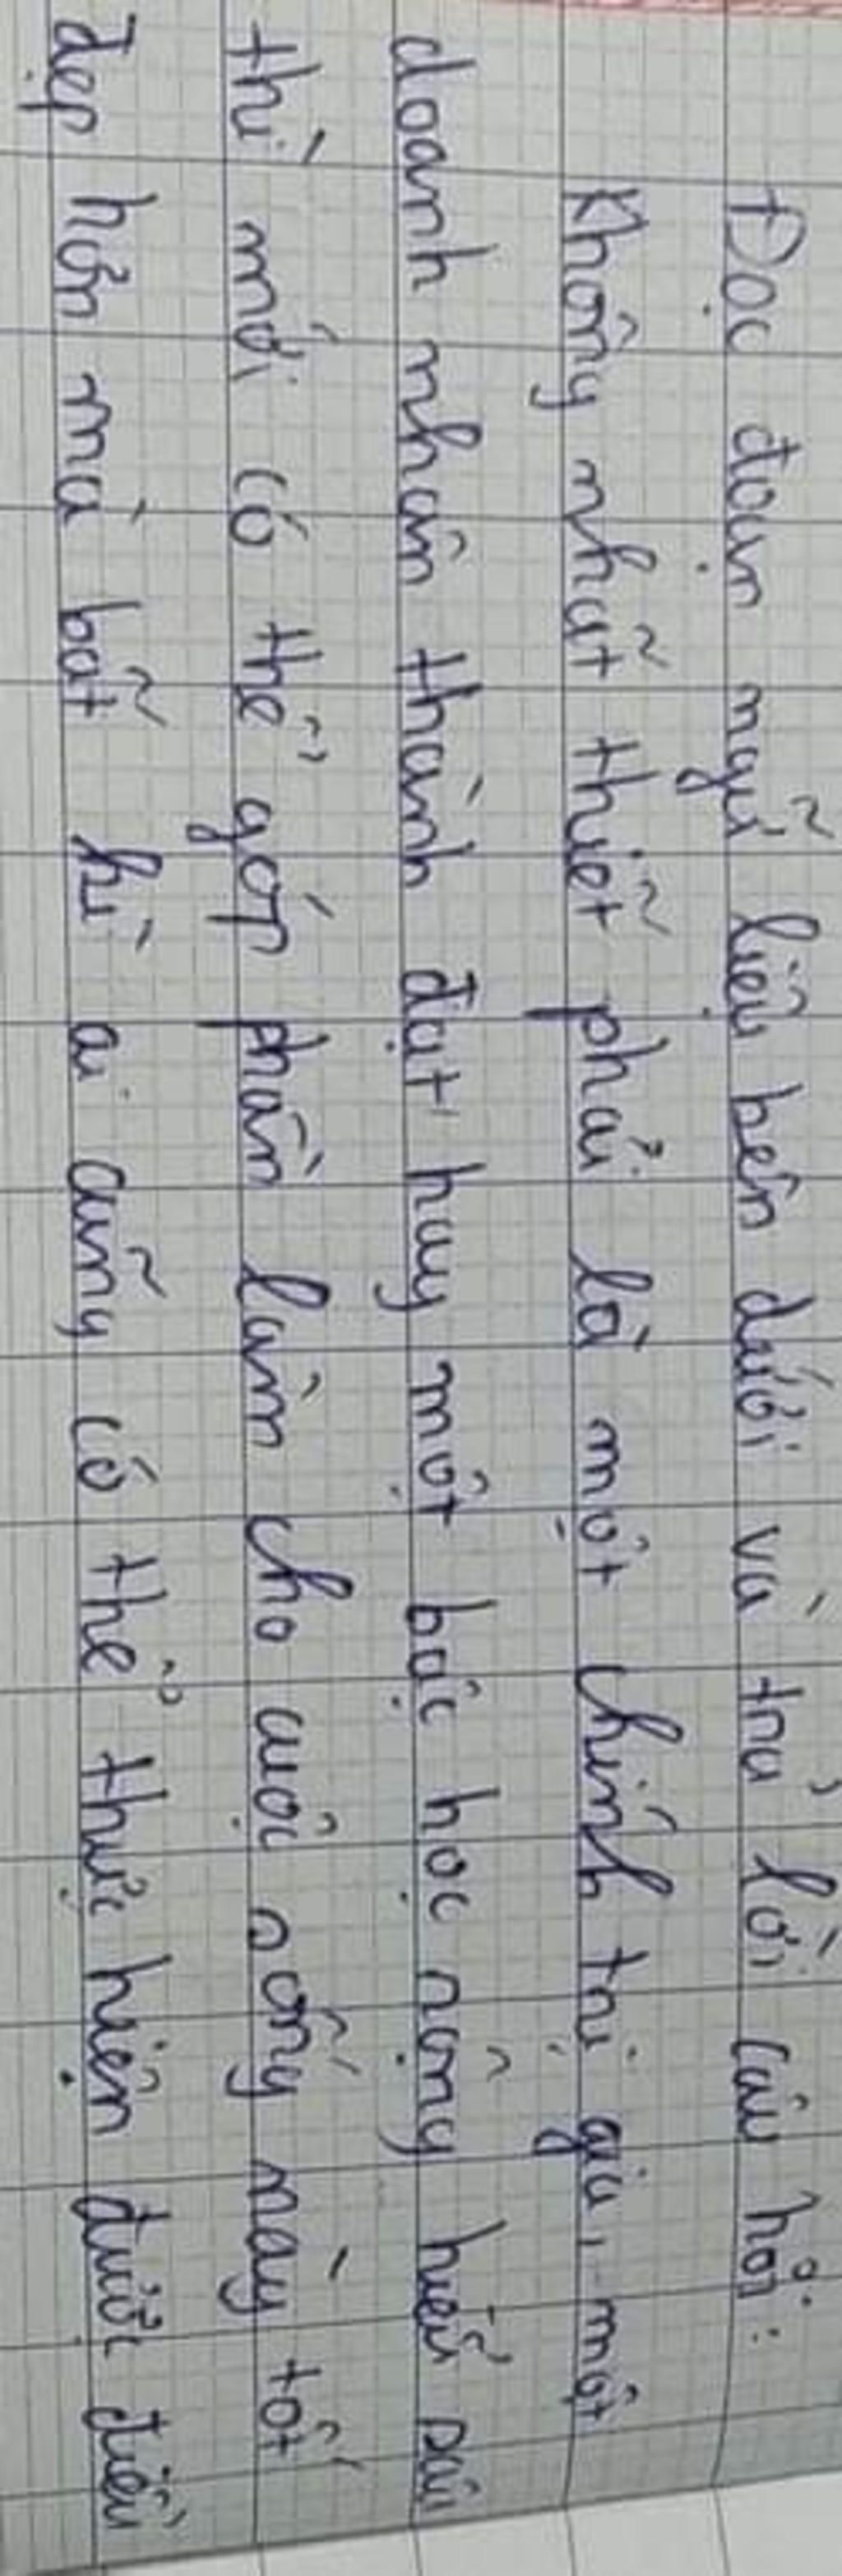 Đọc đoạn ngữ liệu bên dưới và trả lời câu hỏi:
Không nhất thiết phải là một chính trị gia, một
doanh nhân thành đạt hay một bậc học rộng hiểu sâu
thì mới có thể góp phần làm cho cuộc sống này tốt
đẹp hơn mà bất kì ai cũng có thể thực hiện được điều